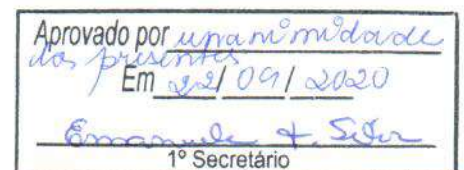 Aprovado por unanimidade
dos presentes
Em 22/09/2020
Emanuele
1º Secretário